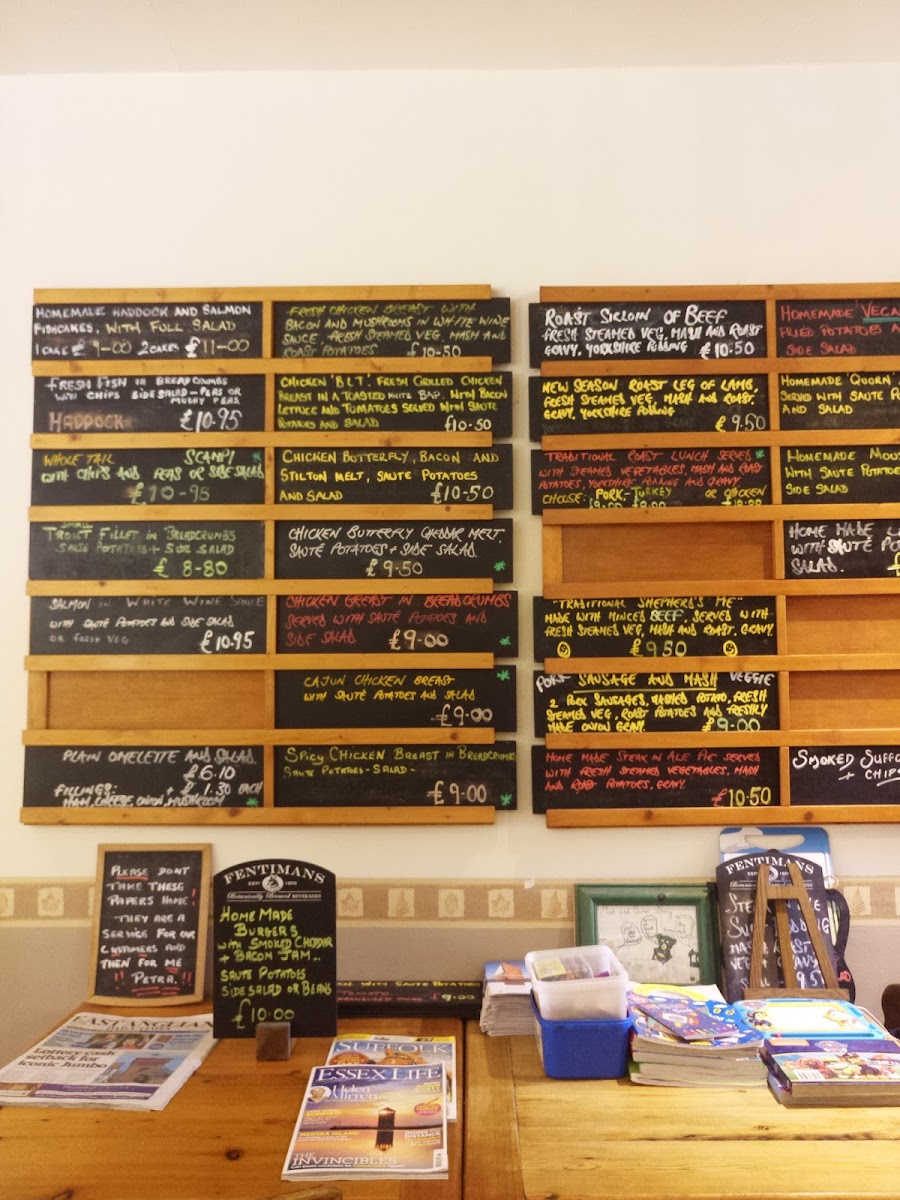 HOMEMADE HADDOCK AND SALMON
FISHCAKES, WITH FULL SALAD
1 CAKE £ 9-00 2 CAKES £11-00
FRESH FISH IN BREADCRUMBS
WITH CHIPS SIDE SALAD - PEAS OR
MUSHY PEAS
HADDOCK £10.95
WHOLE TAIL SCAMPI
WITH CHIPS AND PEAS OR SIDE SALAD
£10-95
SMALL
TROUT FILLET IN BREADCRUMBS
SAUTE POTATOES + SIDE SALAD
£ 8-80
SALMON IN WHITE WINE SAUCE
WITH SAUTÉ POTATOES AND SIDE SALAD
OR FRESH VEG £10.95
PLAIN OMELETTE AND SALAD
£6.10
FILLINGS: + £1.30 EACH
HAM, CHEESE, ONION, MUSHROOM
FRESH CHICKEN BREAST WITH
BACON AND MUSHROOMS IN WHITE WINE
SAUCE, FRESH STEAMED VEG, MASH AND
ROAST POTATOES £10-50
CHICKEN 'B.L.T.' FRESH GRILLED CHICKEN
BREAST IN A TOASTED WHITE BAP. WITH BACON
LETTUCE AND TOMATOES SERVED WITH SAUTE
POTATOES AND SALAD £10-50
CHICKEN BUTTERFLY, BACON AND
STILTON MELT, SAUTE POTATOES
AND SALAD £10-50
CHICKEN BUTTERFLY CHEDDAR MELT.
SAUTÉ POTATOES + SIDE SALAD
£9.50
CHICKEN BREAST IN BREADCRUMBS
SERVED WITH SAUTÉ POTATOES AND
SIDE SALAD £9-00
CAJUN CHICKEN BREAST
WITH SAUTÉ POTATOES AND SALAD
£9.00
SPICY CHICKEN BREAST IN BREADCRUMBS
SAUTE POTATOES - SALAD -
£9.00
ROAST SIRLOIN OF BEEF
FRESH STEAMED VEG, MASH AND ROAST
GRAVY, YORKSHIRE PUDDING £10.50
NEW SEASON ROAST LEG OF LAMB,
FRESH STEAMED VEG, MASH AND ROAST.
GRAVY, YORKSHIRE PUDDING
£9.50
TRADITIONAL ROAST LUNCH SERVED
WITH STEAMED VEGETABLES, MASH AND ROAST
POTATOES, YORKSHIRE PUDDING AND GRAVY.
CHOOSE: PORK - TURKEY OR CHICKEN
"TRADITIONAL SHEPHERD'S PIE"
MADE WITH MINCED BEEF, SERVED WITH
FRESH STEAMED VEG, MASH AND ROAST. GRAVY
£9.50
PORK SAUSAGE AND MASH VEGGIE
2 PORK SAUSAGES, MASHED POTATO, FRESH
STEAMED VEG, ROAST POTATOES AND FRESHLY
MADE ONION GRAVY. £9.00
HOME MADE STEAK IN ALE PIE SERVED
WITH FRESH STEAMED VEGETABLES, MASH
AND ROAST POTATOES, GRAVY.
£10.50
HOMEMADE VEGA
FRIED POTATOES A
SIDE SALAD
HOMEMADE 'QUORN'
SERVED WITH SAUTE PO
AND SALAD
HOMEMADE MOUS
WITH SAUTE POTA
SIDE SALAD
HOME MADE L
WITH SAUTÉ PO
SALAD. £
SMOKED SUFFO
+ CHIPS
PLEASE DONT
TAKE THESE
PAPERS HOME!
THEY ARE A
SERVICE FOR OUR
CUSTOMERS AND
THEN FOR ME
!! PETRA. !!
FENTIMANS
EST 1905
Botanically Brewed BEVERAGES
HOME MADE
BURGERS
WITH SMOKED CHEDDAR
+ BACON JAM...
SAUTÉ POTATOES
SIDE SALAD OR BEANS
£10.00
WITH SAUTE POTATOES
£9.00
FENTIMANS
EAST ANGLIAN
Lottery cash
setback for
iconic Jumbo
SUFFOLK
ESSEX LIFE
Helen
Mirren
THE
INVINCIBLES